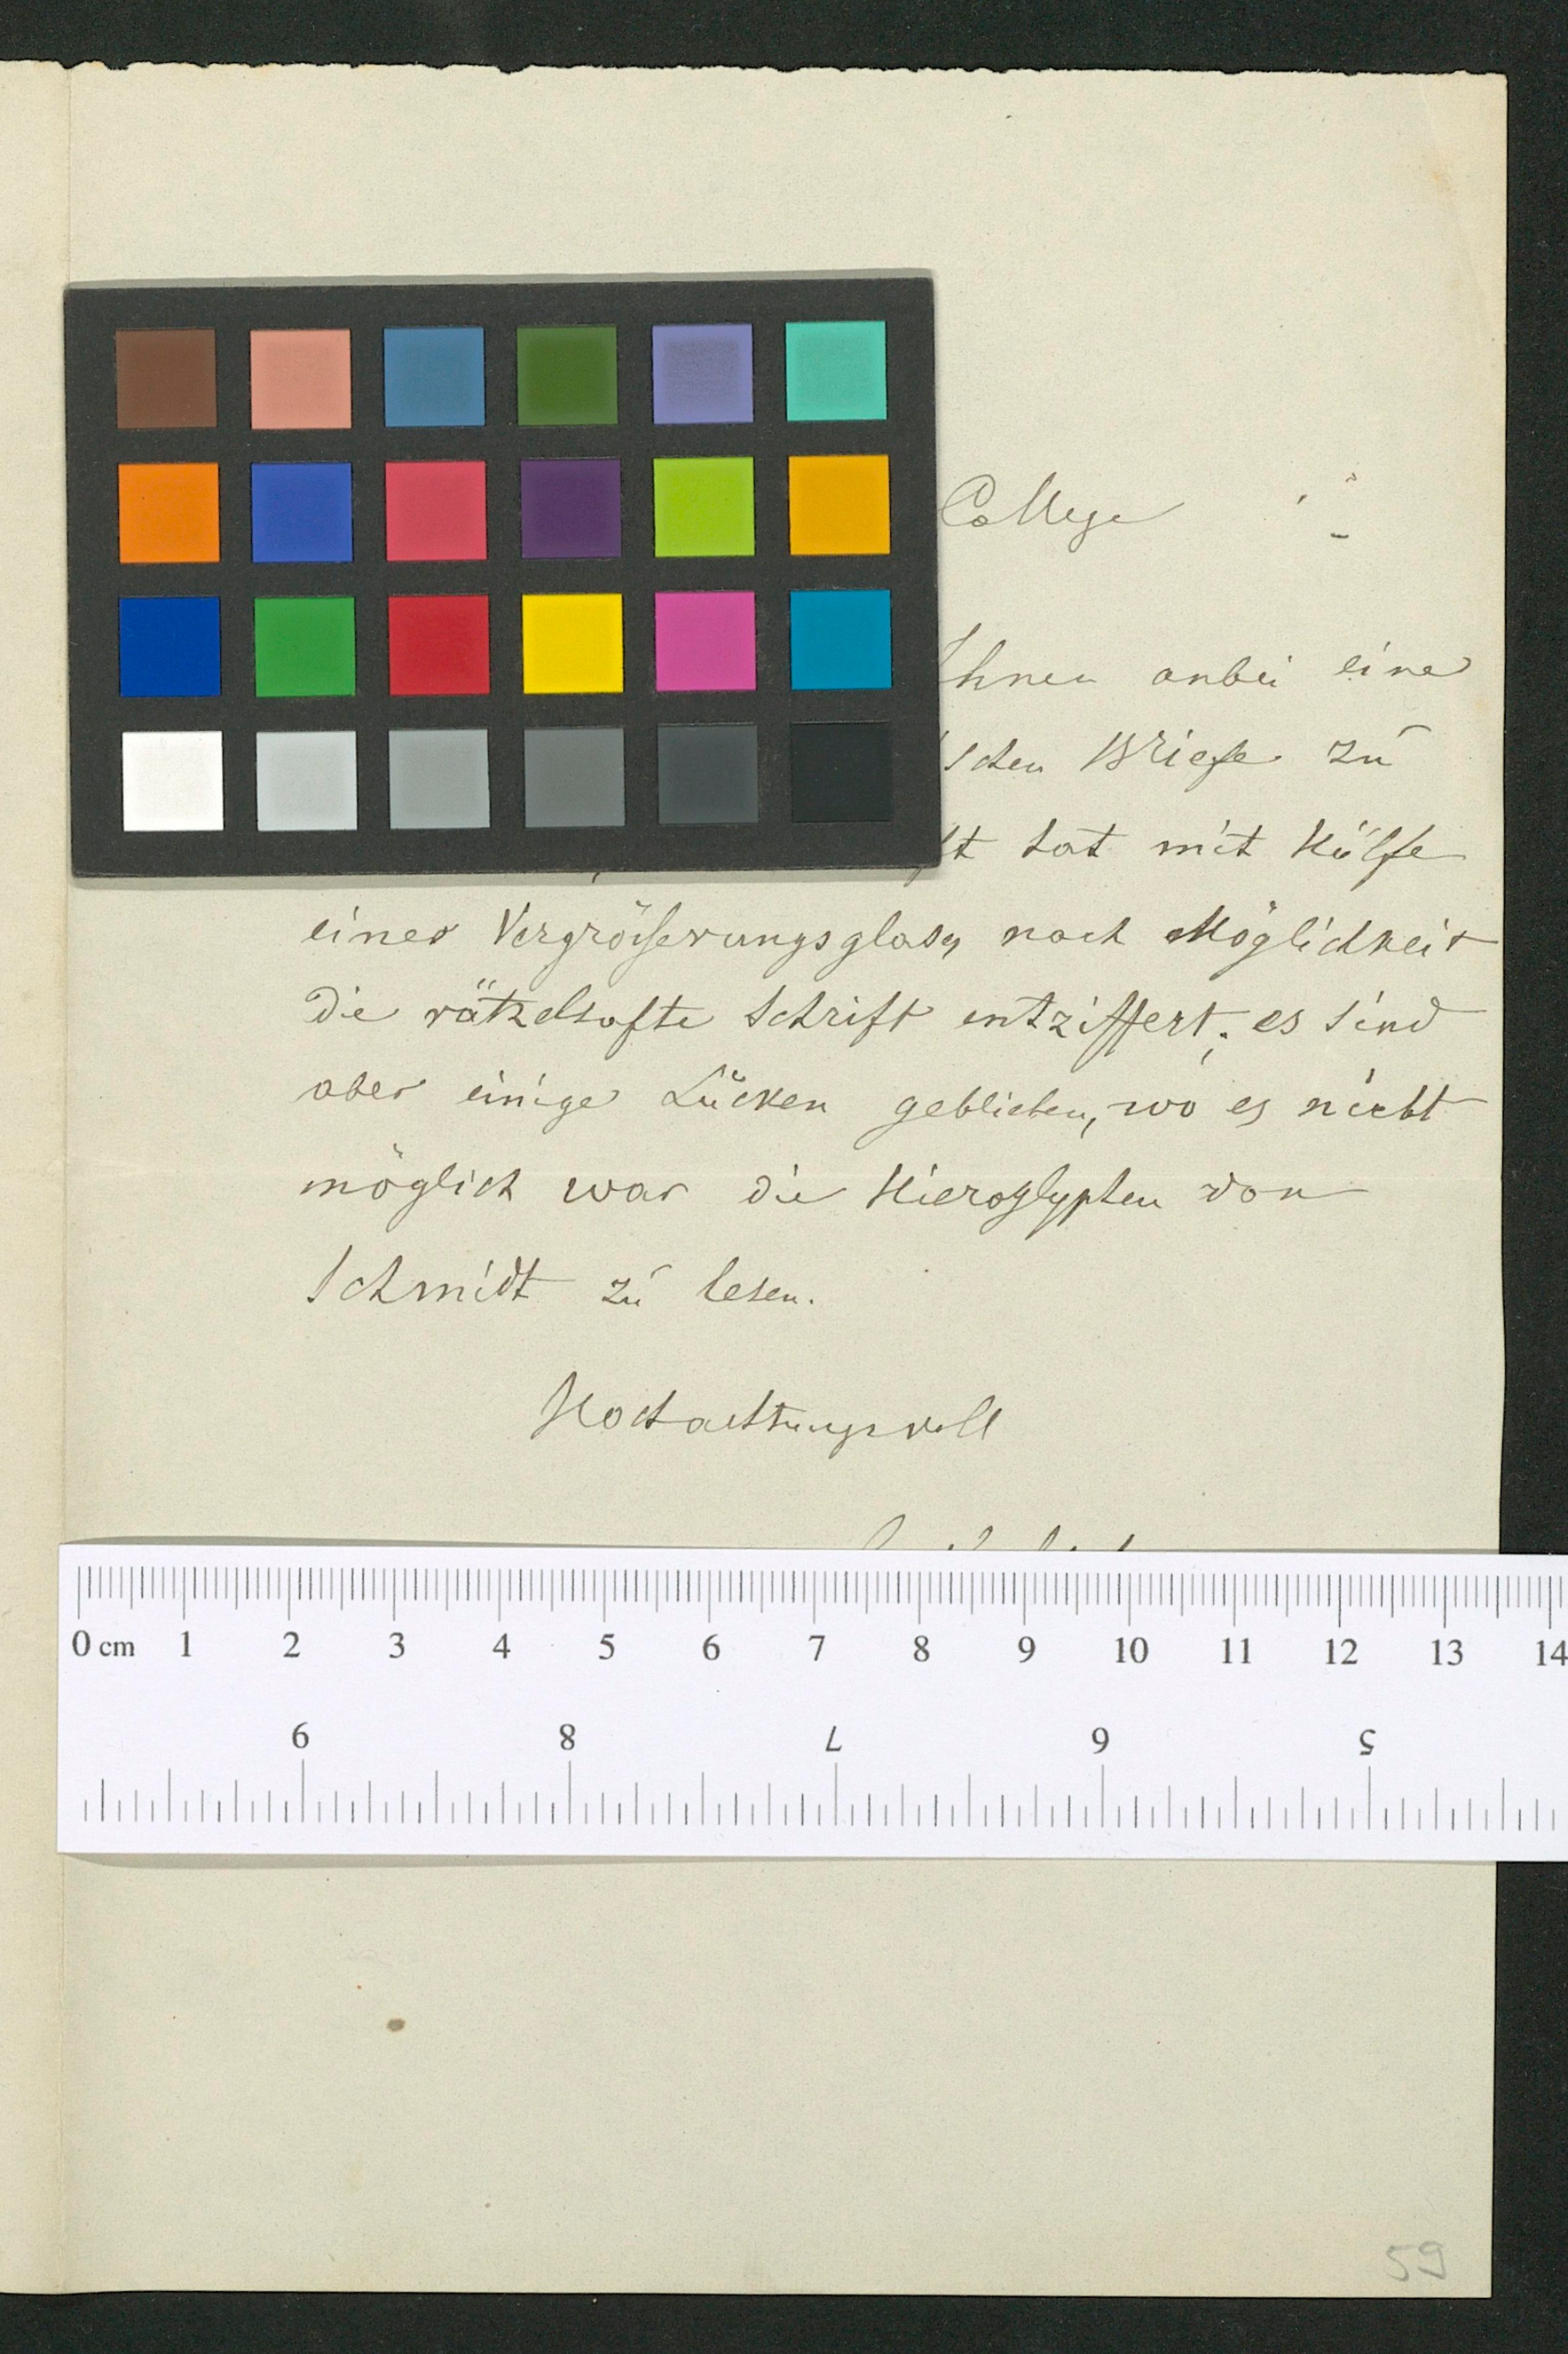 College
Ihnen anbei eine
schen Briefe zu
hat mit Hülfe
eines Vergrößerungsglases nach Möglichkeit
die rätzelhafte Schrift entziffert; es sind
aber einige Lücken geblieben, wo es nicht
möglich war die Hieroglyphen von
Schmidt zu lesen.
Hochachtungsvoll
0 cm 1 2 3 4 5 6 7 8 9 10 11 12 13 14
9 8 7 6 5
59